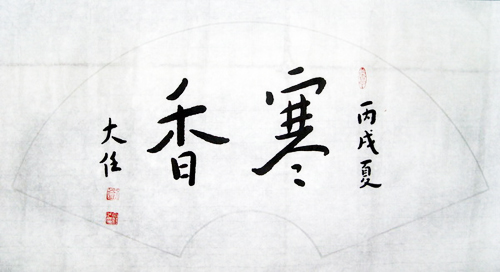 丙戌夏
寒香
大任